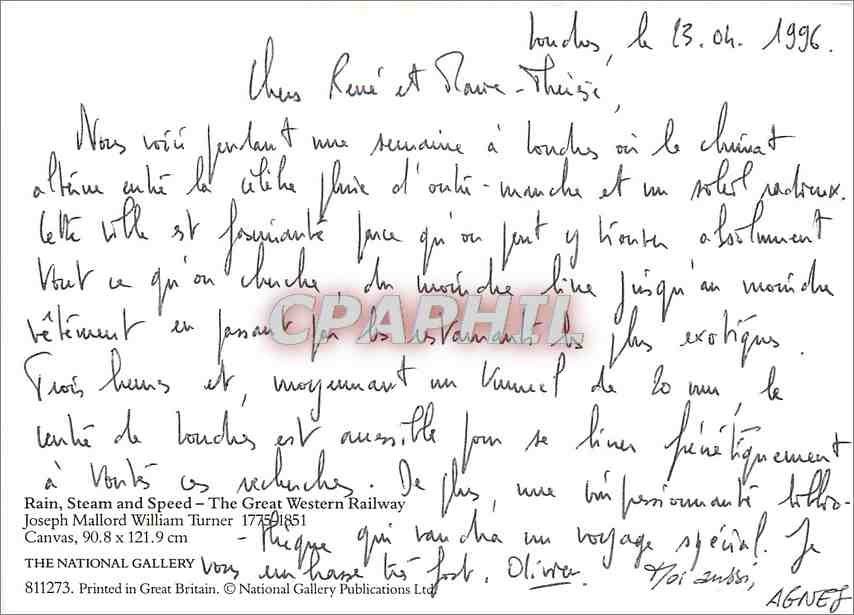 Londres, le 23.04.1996.
Chers René et Marie-Thérèse,
Nous voici pendant une semaine à Londres où le climat
alterne entre la célèbre pluie d'outre-manche et un soleil radieux.
Cette ville est fascinante parce qu'on peut y trouver absolument
tout ce qu'on cherche, du moindre livre jusqu'au moindre
vêtement en passant par les restaurants les plus exotiques.
CPAPHIL
Trois heures et, moyennant un tunnel de 20 mn, le
centre de Londres est accessible pour se livrer frénétiquement
à toutes ces recherches. De plus, une impressionnante biblio-
-thèque qui vaudra un voyage spécial. Je
vous embrasse très fort. Olivier. Moi aussi,
AGNES
Rain, Steam and Speed – The Great Western Railway
Joseph Mallord William Turner 1775-1851
Canvas, 90.8 x 121.9 cm
THE NATIONAL GALLERY
811273. Printed in Great Britain. © National Gallery Publications Ltd